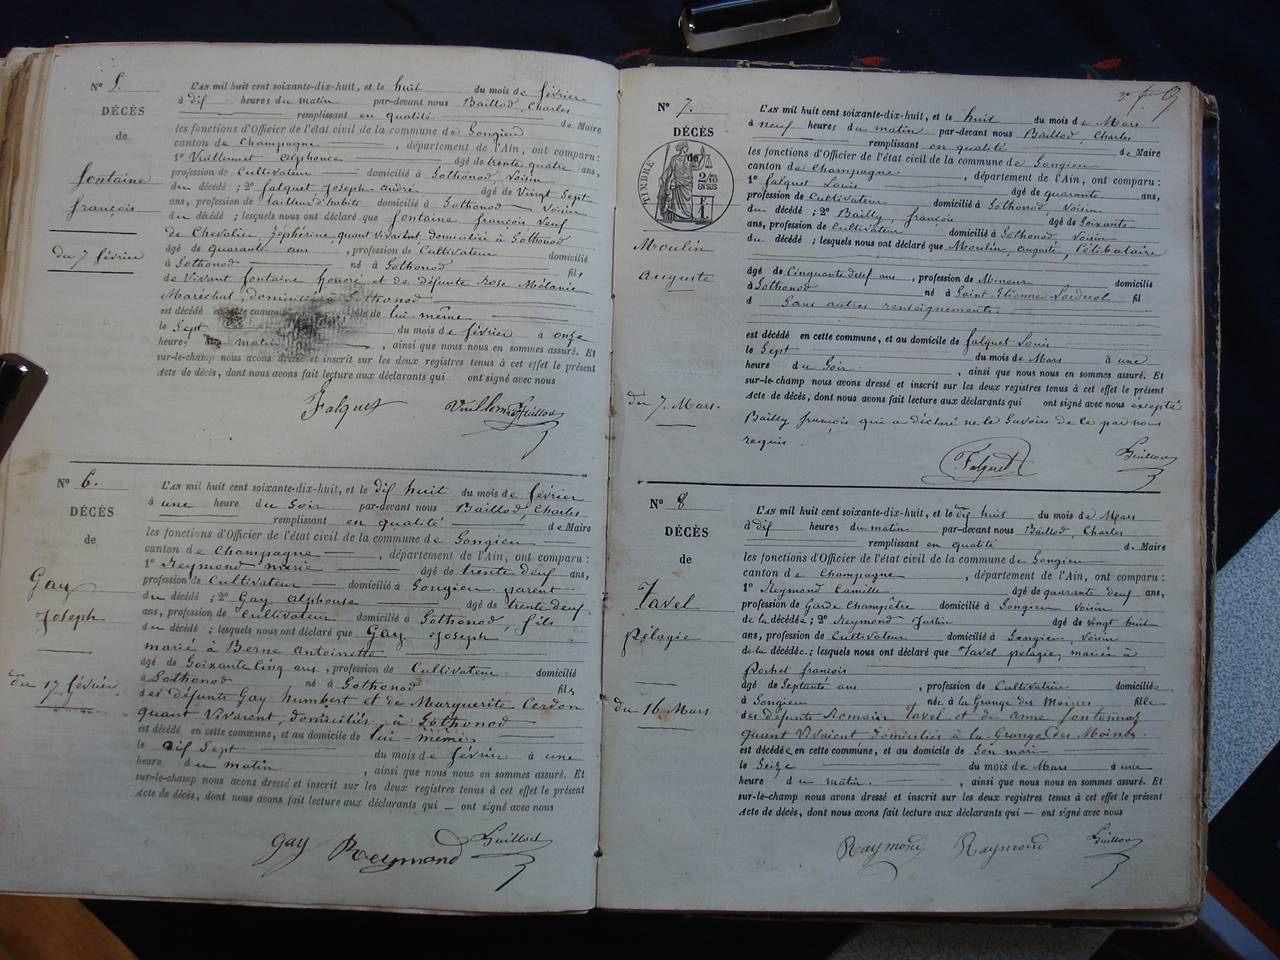 N° 5.
DÉCÈS
de
fontaine
françois
du 7 février
L'AN mil huit cent soixante-dix-huit, et le huit du mois de février
à dix heures du matin par-devant nous Baillod, Charles
remplissant en qualité de Maire
les fonctions d'Officier de l'état civil de la commune de Songieu
canton de Champagne, département de l'Ain, ont comparu :
1° Vuillemet alphonce âgé de trente quatre ans,
profession de Cultivateur domicilié à Sothonod, Voisin
du décédé ; 2° falquet Joseph andré âgé de Vingt Sept
ans, profession de tailleur d'habits domicilié à Sothonod Voisin
du décédé ; lesquels nous ont déclaré que fontaine françois Veuf
de Chevalier Josephérine, quant vivaient domiciliée à Sothonod
âgé de quarante ans, profession de Cultivateur domicilié
à Sothonod né à Sothonod fils
de Vivant fontaine honoré et de défunte Rose Mélanie
Maréchal, domiciliés à Sothonod
est décédé en cette commune de lui même
le Sept du mois de février à onze
heures du matin, ainsi que nous nous en sommes assuré. Et
sur-le-champ nous avons dressé et inscrit sur les deux registres tenus à cet effet le présent
Acte de décès, dont nous avons fait lecture aux déclarants qui ont signé avec nous
Falquet
N° 6.
DÉCÈS
de
Gay
Joseph
du 17 février
L'AN mil huit cent soixante-dix-huit, et le dix huit du mois de février
à une heure du Soir par-devant nous Baillod, Charles
remplissant en qualité de Maire
les fonctions d'Officier de l'état civil de la commune de Songieu
canton de Champagne, département de l'Ain, ont comparu :
1° Reymond marie âgé de trente deux ans,
profession de Cultivateur domicilié à Songieu parent
du décédé ; 2° Gay alphonse âgé de trente deux
ans, profession de Cultivateur domicilié à Sothonod, fils
du décédé ; lesquels nous ont déclaré que Gay Joseph
marié à Berne Antoinette
âgé de Soixante Cinq ans, profession de Cultivateur domicilié
à Sothonod né à Sothonod fils
des Défunts Gay humbert et de Marguerite Cerdon
quant Vivaient, domiciliés à Sothonod
est décédé en cette commune, et au domicile de lui-même
le dix Sept du mois de février à une
heure du matin, ainsi que nous nous en sommes assuré. Et
sur-le-champ nous avons dressé et inscrit sur les deux registres tenus à cet effet le présent
Acte de décès, dont nous avons fait lecture aux déclarants qui ont signé avec nous
gay Reymond
N° 7.
DÉCÈS
de
TIMBRE
2/10
EN SUS
Moulin
Auguste
du 7. Mars.
L'AN mil huit cent soixante-dix-huit, et le huit du mois de Mars
à neuf heures du matin par-devant nous Baillod, Charles
remplissant en qualité de Maire
les fonctions d'Officier de l'état civil de la commune de Songieu
canton de Champagne, département de l'Ain, ont comparu :
1° falquet Louis âgé de quarante ans,
profession de Cultivateur domicilié à Sothonod, Voisin
du décédé ; 2° Bailly, françois âgé de Soixante
ans, profession de Cultivateur domicilié à Sothonod Voisin
du décédé ; lesquels nous ont déclaré que Moulin auguste, Célibataire
âgé de Cinquante deux ans, profession de Mineur domicilié
à Sothonod né à Saint-Etienne fil
d Sans autres renseignements
est décédé en cette commune, et au domicile de falquet Louis
le Sept du mois de Mars à une
heure du Soir, ainsi que nous nous en sommes assuré. Et
sur-le-champ nous avons dressé et inscrit sur les deux registres tenus à cet effet le présent
Acte de décès, dont nous avons fait lecture aux déclarants qui ont signé avec nous éxcepté
Bailly françois qui a déclaré ne le Savoir de ce par nous
requis.
Falquet
N° 8
DÉCÈS
de
Tavel
Pélagie
du 16 Mars
L'AN mil huit cent soixante-dix-huit, et le dix huit du mois de Mars
à dix heures du matin par-devant nous Baillod, Charles
remplissant en qualité de Maire
les fonctions d'Officier de l'état civil de la commune de Songieu
canton de Champagne, département de l'Ain, ont comparu :
1° Reymond Camille âgé de quarante deux ans,
profession de Garde Champêtre domicilié à Songieu Voisin
de la décédée ; 2° Reymond Justin âgé de vingt huit
ans, profession de Cultivateur domicilié à Songieu, voisin
de la décédée ; lesquels nous ont déclaré que Tavel pélagie, mariée à
Rochet françois
âgé de Septante ans, profession de Cultivateur domiciliée
à Songieu née à la Grange des Moines fille
des défunts Romain Tavel et de anne fontonnoz
quant Vivaient domiciliés à la Grange des Moines.
est décédée en cette commune, et au domicile de Son mari
le Seize du mois de Mars à une
heure du matin, ainsi que nous nous en sommes assuré. Et
sur-le-champ nous avons dressé et inscrit sur les deux registres tenus à cet effet le présent
Acte de décès, dont nous avons fait lecture aux déclarants qui ont signé avec nous
Raymond Raymond